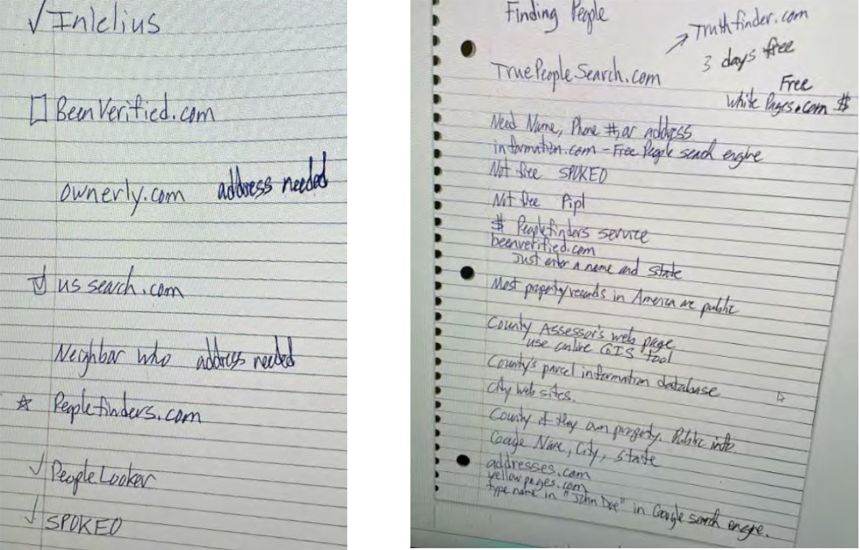 ✓ Inlelius
☐ BeenVerified.com
ownerly.com address needed
☑ us search.com
Neighbar who address needed
☆ Peoplefinders.com
✓ People Looker
✓ SPOKEO
Finding People
→ Truthfinder.com
3 days free
TruePeopleSearch.com
Free
White Pages.com $
Need Name, Phone #, or address
information.com - Free People search engine
Not free SPOKEO
Not free Pipl
$ Peoplefinders service
beenverified.com
Just enter a name and state
Most property records in America are public
County Assessor's web page
use online GIS tool
County's parcel information database
City web sites.
County if they own property. Public info
Google Name, City, State
addresses.com
yellowpages.com
type name in "John Doe" in Google search engine.